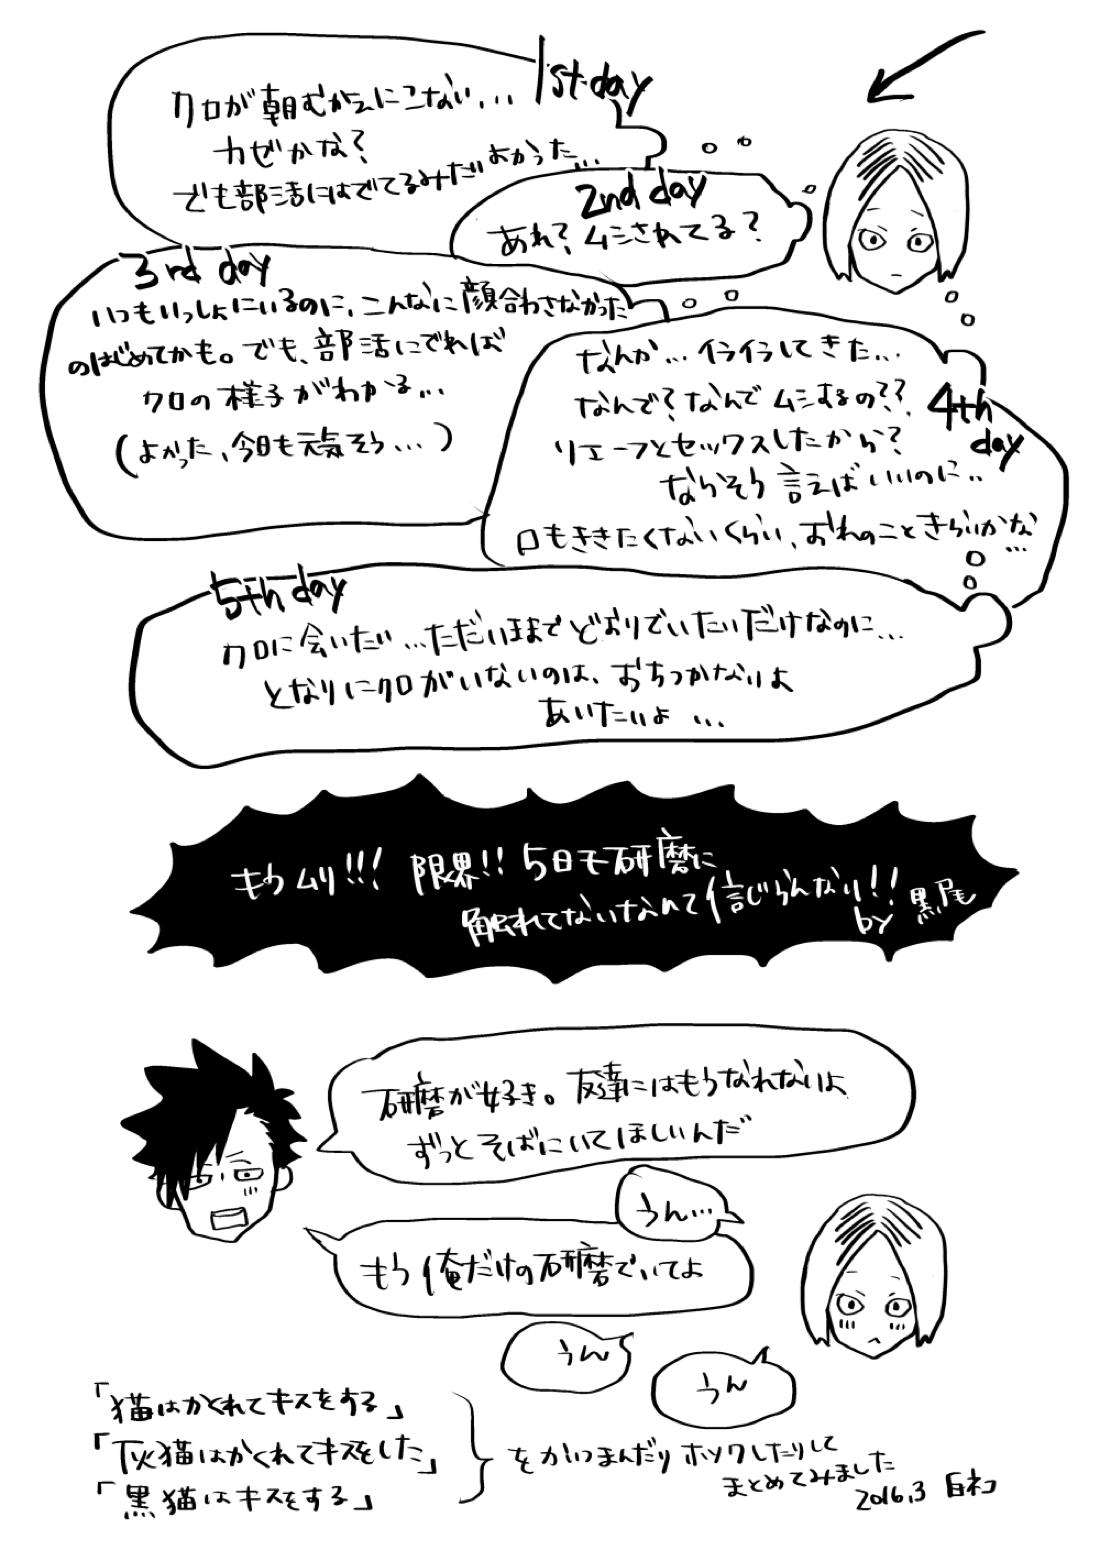 1st day
クロが朝むかえにこない...
カゼかな?
でも部活にはでてるみたいだよかった...
2nd day
あれ?ムシされてる?
3rd day
いつもいっしょにいるのに、こんなに顔合わさなかった
のはじめてかも。でも、部活にでれば
クロの様子がわかる...
(よかった、今日も元気そう...)
4th
day
なんか...イライラしてきた...
なんで?なんでムシするの??
リエーフとセックスしたから?
ならそう言えばいいのに..
口もききたくないくらい、おれのこときらいかな
...
5th day
クロに会いたい...ただいままでどおりでいたいだけなのに...
となりにクロがいないのは、おちつかないよ
あいたいよ...
もうムリ!!!限界!!5日も研磨に
触れてないなんて信じらんない!!
by 黒尾
研磨が好き。友達にはもうなれないよ
ずっとそばにいてほしいんだ
うん...
もう俺だけの研磨でいてよ
うん
うん
「猫はかくれてキスをする」
「灰猫はかくれてキスをした」
「黒猫はキスをする」
をかいつまんだりホソクしたりして
まとめてみました
2016.3